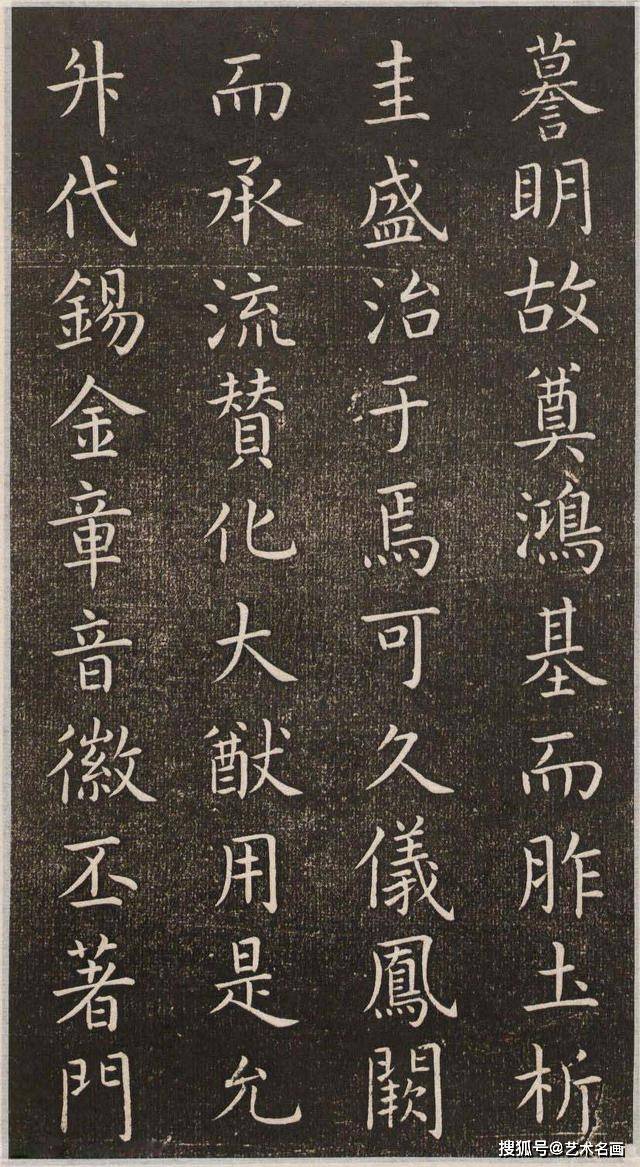 謩眀故奠鴻基而胙土析
圭盛治于焉可久儀鳳闕
而承流賛化大猷用是允
升代錫金章音徽丕著門
搜狐号@艺术名画